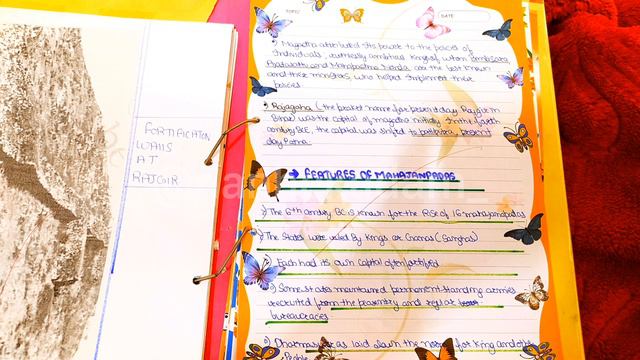 FORTIFICATION
WALLS
AT
RAJGIR
TOPIC
DATE
Magadha attributed its power to the policies of
individuals, ruthlessly ambitious Kings of whom Bimbisara,
and Mahapadma Nanda are the best known
and their ministers, who helped implement their
policies.
Rajagaha (the prakrit name for present day Rajgir in
Bihar was the capital of magadha initially. In the fourth
century BCE, the capital was shifted to present
day Patna.
→ FEATURES OF MAHAJANPADAS
The 6th century BC is known for the Rise of 16 mahajanapadas
The States were ruled By Kings or Ganas (Sanghas)
Each had its own capital often fortified
Some states maintained permanent standing armies
recruited from the peasantry and regular
bureaucracies
as laid down the for king and
People